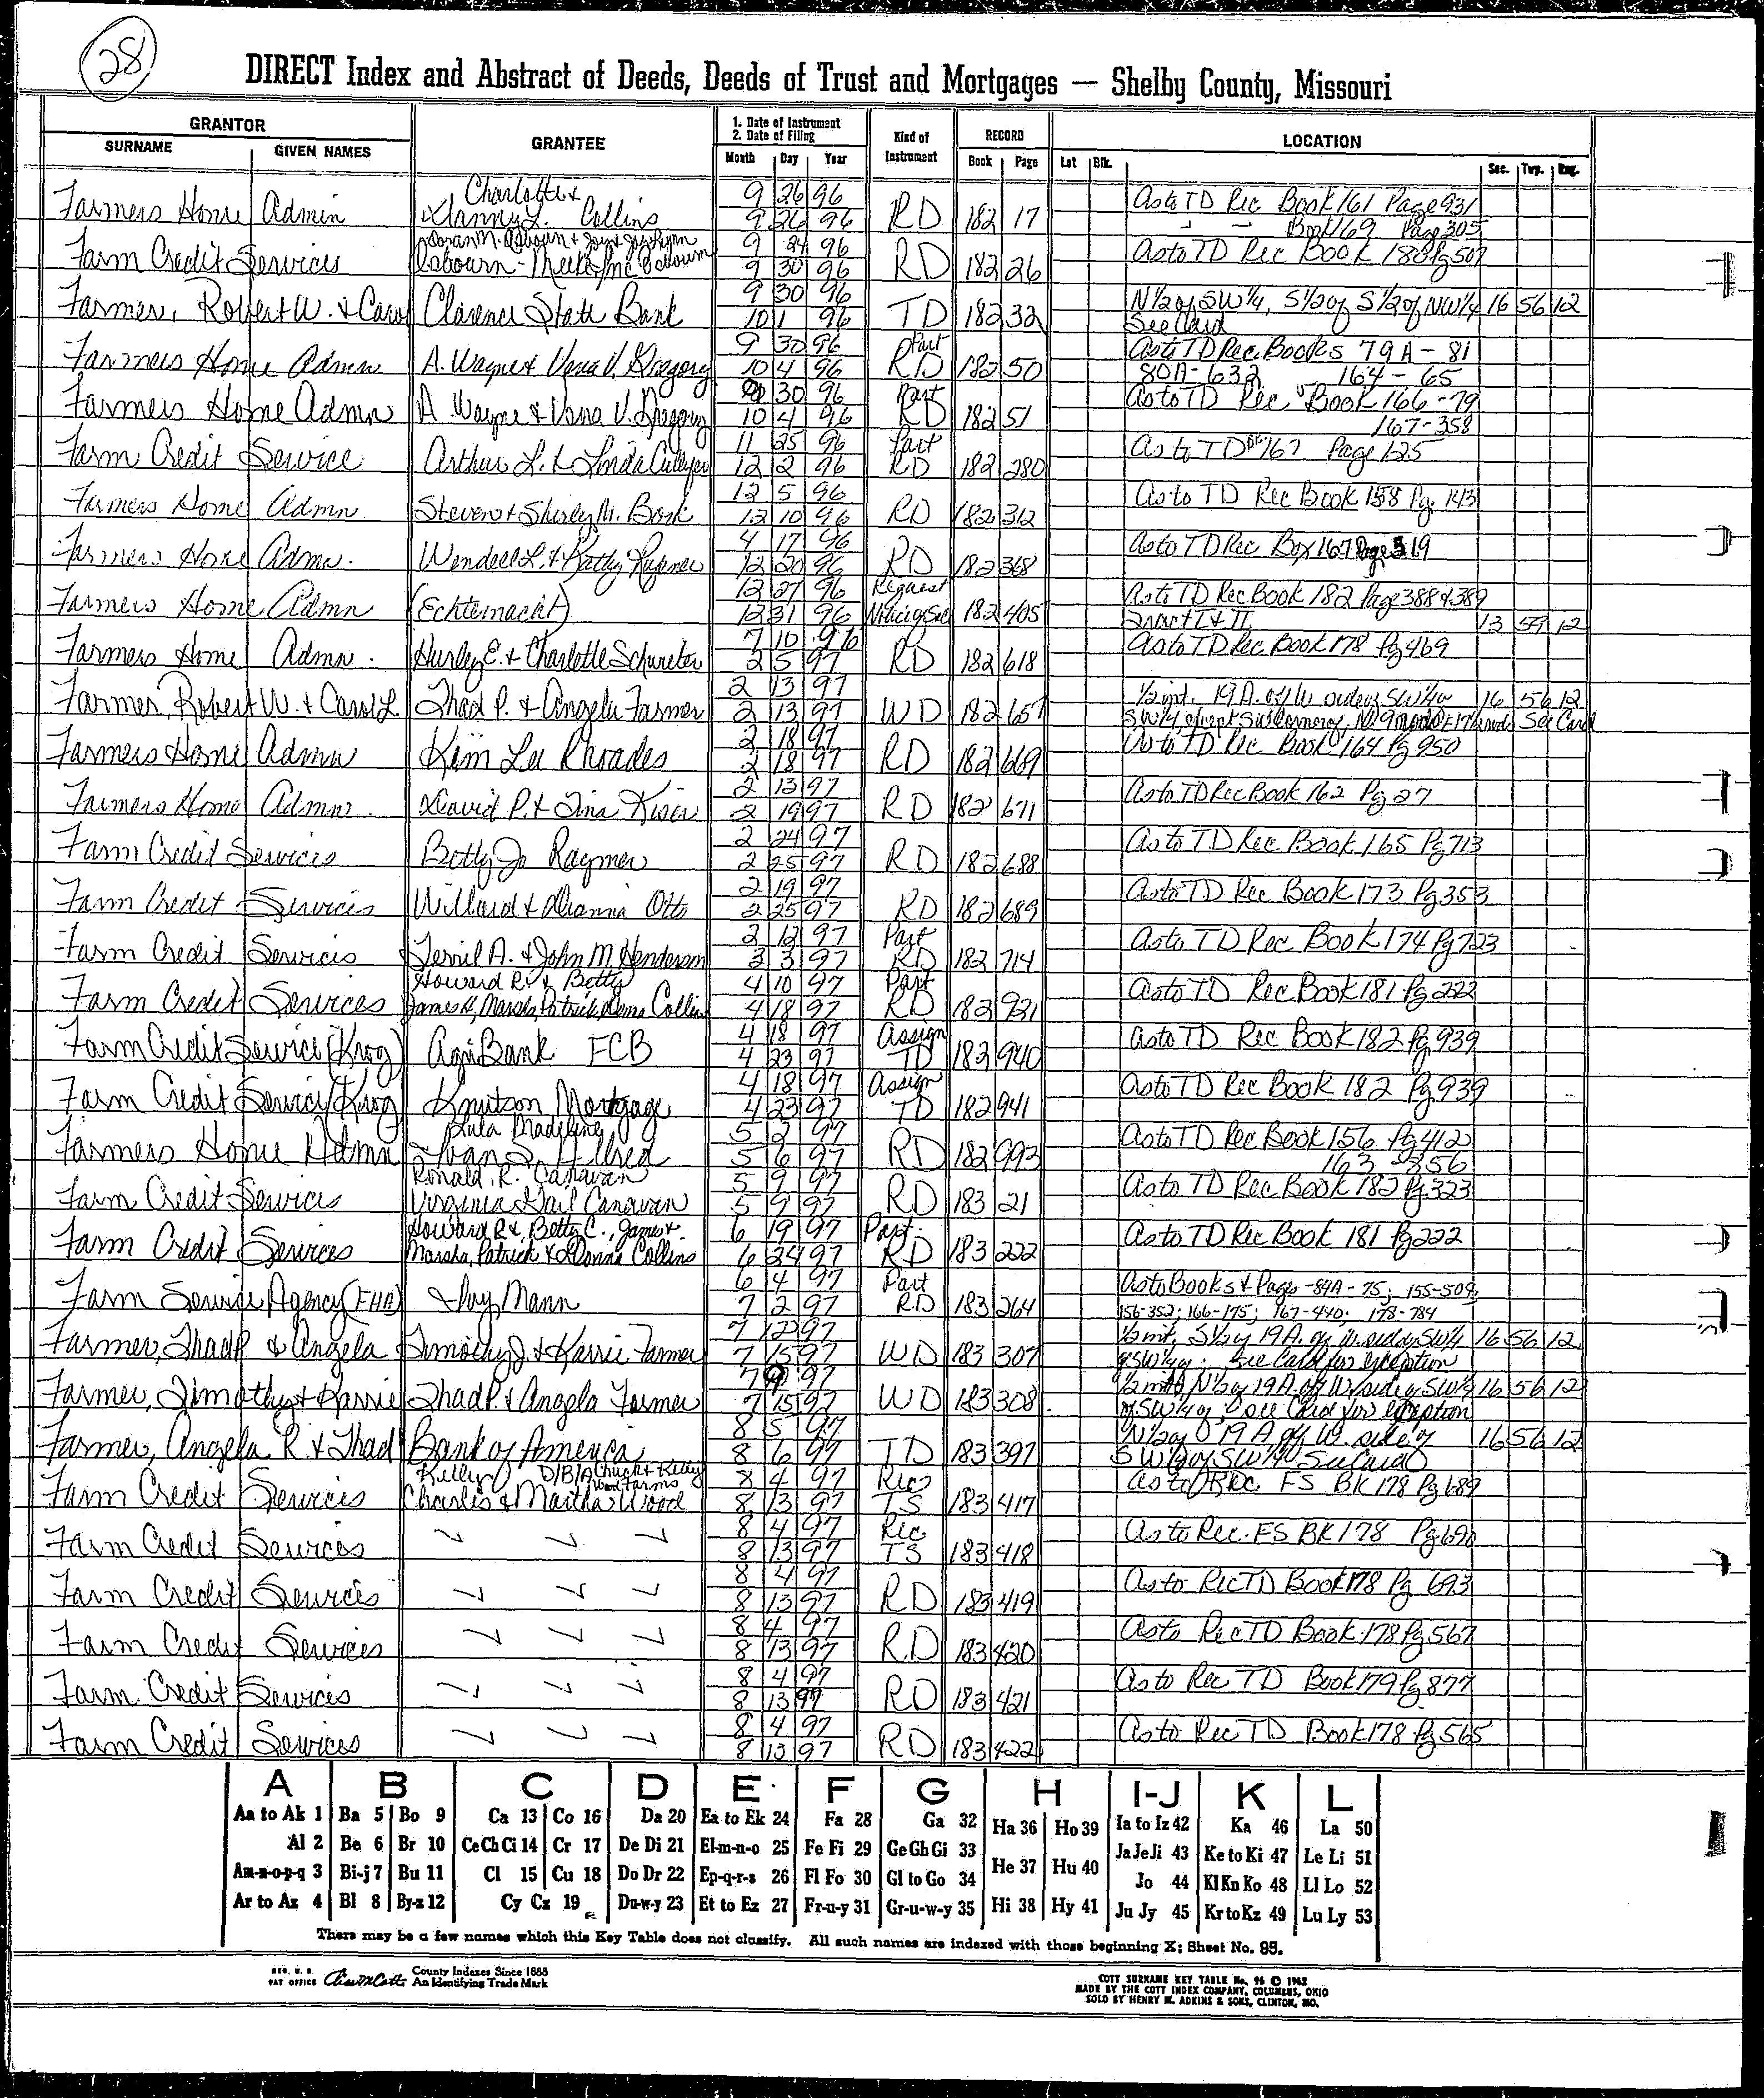 28
DIRECT Index and Abstract of Deeds, Deeds of Trust and Mortgages — Shelby County, Missouri
GRANTOR
SURNAME GIVEN NAMES
GRANTEE
1. Date of Instrument
2. Date of Filing
Month Day Year
Kind of Instrument
RECORD
Book Page
LOCATION
Lot Blk. Sec. Twp. Rng.
Farmers Home Admin Charlotte & Danny L. Collins 9 26 96 RD 182 17 As to TD Rec Book 161 Page 931
9 26 96 Book 169 Page 305
Farm Credit Services 9 24 96 RD 182 26 As to TD Rec Book 180 Pg 507
9 30 96
Farmer, Robert W. & Carol Clarence State Bank 9 30 96 TD 182 32 N½ of SW¼, S½ of S½ of NW¼ 16 56 12
10 1 96 See Card
Farmers Home Admn A. Wayne & Vena V. Gregory 9 30 96 Part RD 182 50 As to TD Rec. Books 79A-81
10 4 96 80A-632 164-65
Farmers Home Admn A. Wayne & Vena V. Gregory 9 30 96 Part RD 182 51 As to TD Rec. Book 166-79
10 4 96 167-358
Farm Credit Service Arthur L. & Linda 11 25 96 Part RD 182 280 As to TD Bk 167 Page 125
12 2 96
Farmers Home Admn Steven & Shirley M. Bock 12 5 96 RD 182 312 As to TD Rec Book 158 Pg 143
12 10 96
Farmers Home Admn. Wendell L. & Kathy 4 17 96 RD 182 368 As to TD Rec Box 167 Page 519
12 20 96
Farmers Home Admn (Echternacht) 12 27 96 Request 182 405 As to TD Rec Book 182 Page 388 & 389
12 31 96 Tract I & II 13 59 12
Farmers Home Admn. Hurley E. & Charlotte Schwieter 7 10 96 RD 182 618 As to TD Rec Book 178 Pg 469
2 5 97
Farmer, Robert W. & Carol L. Thad P. & Angela Farmer 2 13 97 WD 182 657 ½ int. 19 A. off W side of SW¼ of 16 56 12
2 13 97 SW¼ except See Card
Farmers Home Admn Kim Lee Rhoades 2 18 97 RD 182 669 As to TD Rec Book 164 Pg 950
2 18 97
Farmers Home Admn. David P. & Tina Kiser 2 13 97 RD 182 671 As to TD Rec Book 162 Pg 27
2 19 97
Farm Credit Services Betty Jo Raymer 2 24 97 RD 182 688 As to TD Rec Book 165 Pg 713
2 25 97
Farm Credit Services Willard & Dianna Otto 2 19 97 RD 182 689 As to TD Rec Book 173 Pg 353
2 25 97
Farm Credit Services Terril A. & John M. Henderson 2 12 97 Part RD 182 714 As to TD Rec. Book 174 Pg 723
3 3 97
Farm Credit Services Howard R. & Betty 4 10 97 Part RD 182 921 As to TD Rec Book 181 Pg 222
James H, Marsha, Patrick, Donna Collins 4 18 97
Farm Credit Service (Krog) AgriBank FCB 4 18 97 Assign TD 182 940 As to TD Rec Book 182 Pg 939
4 23 97
Farm Credit Service (Krog) Knutson Mortgage 4 18 97 Assign TD 182 941 As to TD Rec Book 182 Pg 939
4 23 97
Farmers Home Admn Lula Madeline 5 2 97 RD 182 993 As to TD Rec Book 156 Pg 412
Ivan S. Allred 5 6 97 163 - 356
Farm Credit Services Ronald R. Canavan 5 9 97 RD 183 21 As to TD Rec Book 182 Pg 323
Virginia Gail Canavan 5 9 97
Farm Credit Services Howard R &, Betty C., James & 6 19 97 Part RD 183 222 As to TD Rec Book 181 Pg 222
Marsha, Patrick & Donna Collins 6 24 97
Farm Service Agency (FHA) Mann 6 4 97 Part RD 183 264 As to Books & Pages - 84A-75; 155-509;
7 2 97 156-352; 166-175; 167-440; 178-784
Farmer, Thad P & Angela Timothy J & Karrie Farmer 7 12 97 WD 183 307 ½ int. S½ of 19 A. off W. side of SW¼ 16 56 12
7 15 97 of SW¼ of. See Card for exception
Farmer, Timothy & Karrie Thad P. & Angela Farmer 7 9 97 WD 183 308 ½ int N½ of 19 A. off W side of SW¼ 16 56 12
7 15 97 of SW¼ of, see Card for exception
Farmer, Angela R. & Thad Bank of America 8 5 97 TD 183 397 N½ of 19 A off W. side of 16 56 12
8 6 97 SW¼ of SW¼ See Card
Farm Credit Services Kelly D/B/A Chuck & Kelly Wood Farms 8 4 97 Rec TS 183 417 As to Rec FS BK 178 Pg 689
Charles & Martha Wood 8 13 97
Farm Credit Services 8 4 97 Rec TS 183 418 As to Rec. FS BK 178 Pg 690
8 13 97
Farm Credit Services 8 4 97 RD 183 419 As to Rec TD Book 178 Pg 693
8 13 97
Farm Credit Services 8 4 97 RD 183 420 As to Rec TD Book 178 Pg 567
8 13 97
Farm Credit Services 8 4 97 RD 183 421 As to Rec TD Book 179 Pg 877
8 13 97
Farm Credit Services 8 4 97 RD 183 422 As to Rec TD Book 178 Pg 565
8 13 97
A B C D E F G H I-J K L
Aa to Ak 1 Ba 5 Bo 9 Ca 13 Co 16 Da 20 Ea to Ek 24 Fa 28 Ga 32 Ha 36 Ho 39 Ia to Iz 42 Ka 46 La 50
Al 2 Be 6 Br 10 Ce Ch Ci 14 Cr 17 De Di 21 El-m-n-o 25 Fe Fi 29 Ge Gh Gi 33 He 37 Hu 40 Ja Je Ji 43 Ke to Ki 47 Le Li 51
Am-n-o-p-q 3 Bi-j 7 Bu 11 Cl 15 Cu 18 Do Dr 22 Ep-q-r-s 26 Fl Fo 30 Gl to Go 34 Jo 44 Kl Kn Ko 48 Ll Lo 52
Ar to Az 4 Bl 8 By-z 12 Cy Cz 19 Du-w-y 23 Et to Ez 27 Fr-u-y 31 Gr-u-w-y 35 Hi 38 Hy 41 Ju Jy 45 Kr to Kz 49 Lu Ly 53
There may be a few names which this Key Table does not classify. All such names are indexed with those beginning X; Sheet No. 95.
REG. U. S. PAT OFFICE County Indexes Since 1888
An Identifying Trade Mark
COTT SURNAME KEY TABLE No. 96 © 1962
MADE BY THE COTT INDEX COMPANY, COLUMBUS, OHIO
SOLD BY HENRY M. ADKINS & SONS, CLINTON, MO.